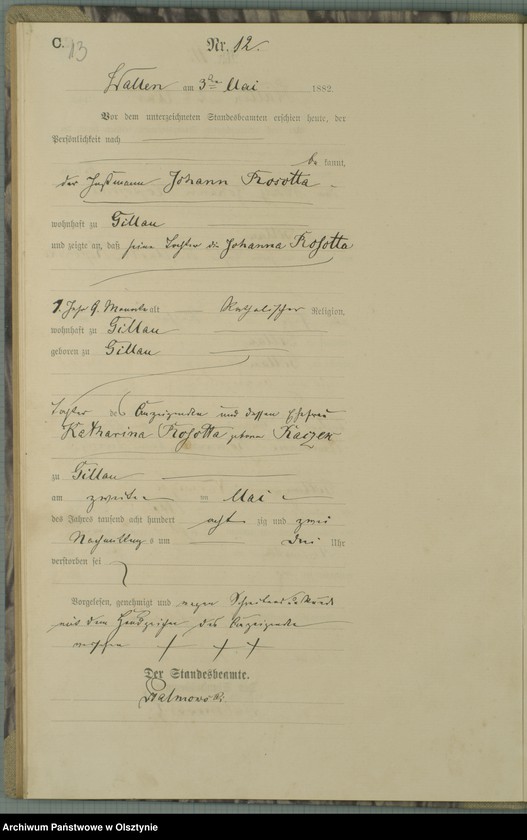 C.
13
Nr. 12.
Wallen am 3ten Mai 1882.
Vor dem unterzeichneten Standesbeamten erschien heute, der
Persönlichkeit nach
be kannt,
der Johann Kosotta
wohnhaft zu Gillau
und zeigte an, daß seine Tochter die Johanna Kosotta
1. Jahr 9. Monate alt Katholischer Religion,
wohnhaft zu Gillau
geboren zu Gillau
Tochter des Anzeigenden und dessen Ehefrau
Katharina Kosotta geborne Kaszek
zu Gillau
am zweiten Mai
des Jahres tausend acht hundert acht zig und zwei
Nachmittag s um drei Uhr
verstorben sei
Vorgelesen, genehmigt und wegen Schreibensunkunde
mit dem Handzeichen des Anzeigenden
versehen + + +
Der Standesbeamte.
Archiwum Państwowe w Olsztynie